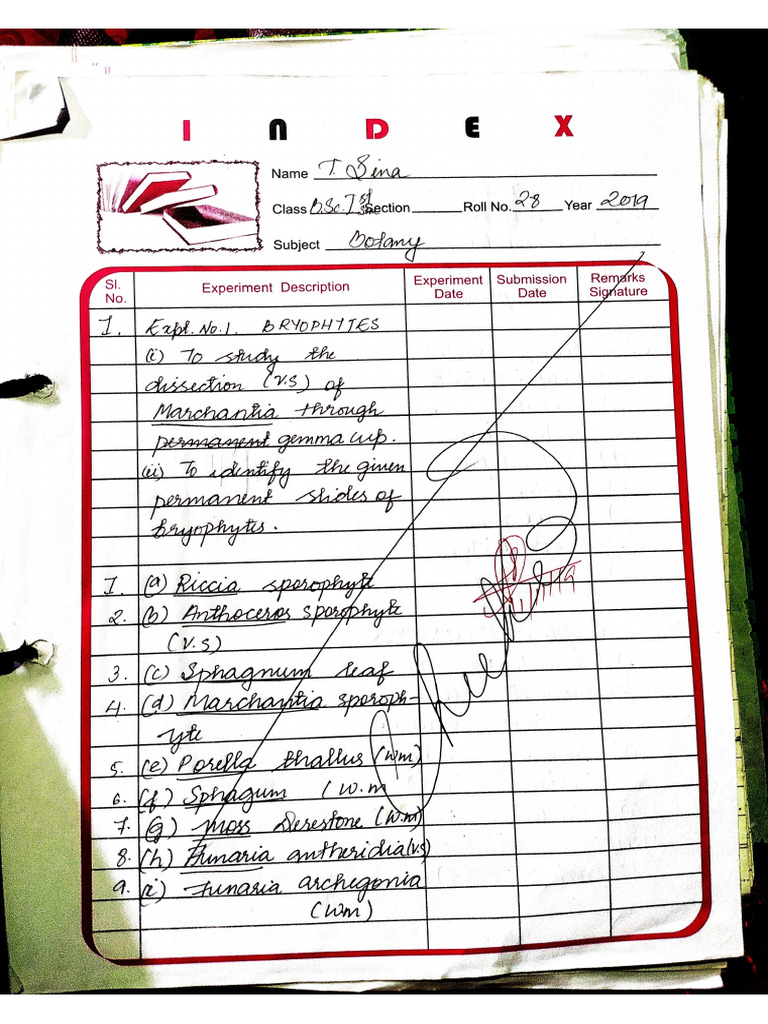 INDEX
Name T. Sina
Class B.Sc. 1st Section Roll No. 28 Year 2019
Subject Botany
Sl. No. Experiment Description Experiment Date Submission Date Remarks Signature
1. Expt. No. 1. BRYOPHYTES
(i) To study the
dissection (V.S) of
Marchantia through
permanent gemma cup.
(ii) To identify the given
permanent slides of
bryophytes.
1. (a) Riccia sporophyte
2. (b) Anthoceros sporophyte
(V.S)
3. (c) Sphagnum leaf
4. (d) Marchantia sporoph-
yte
5. (e) Porella thallus (W.m)
6. (f) Sphagum (W.m
7. (g) Moss (W.m)
8. (h) Funaria antheridia (V.S)
9. (i) Funaria archegonia
(Wm)